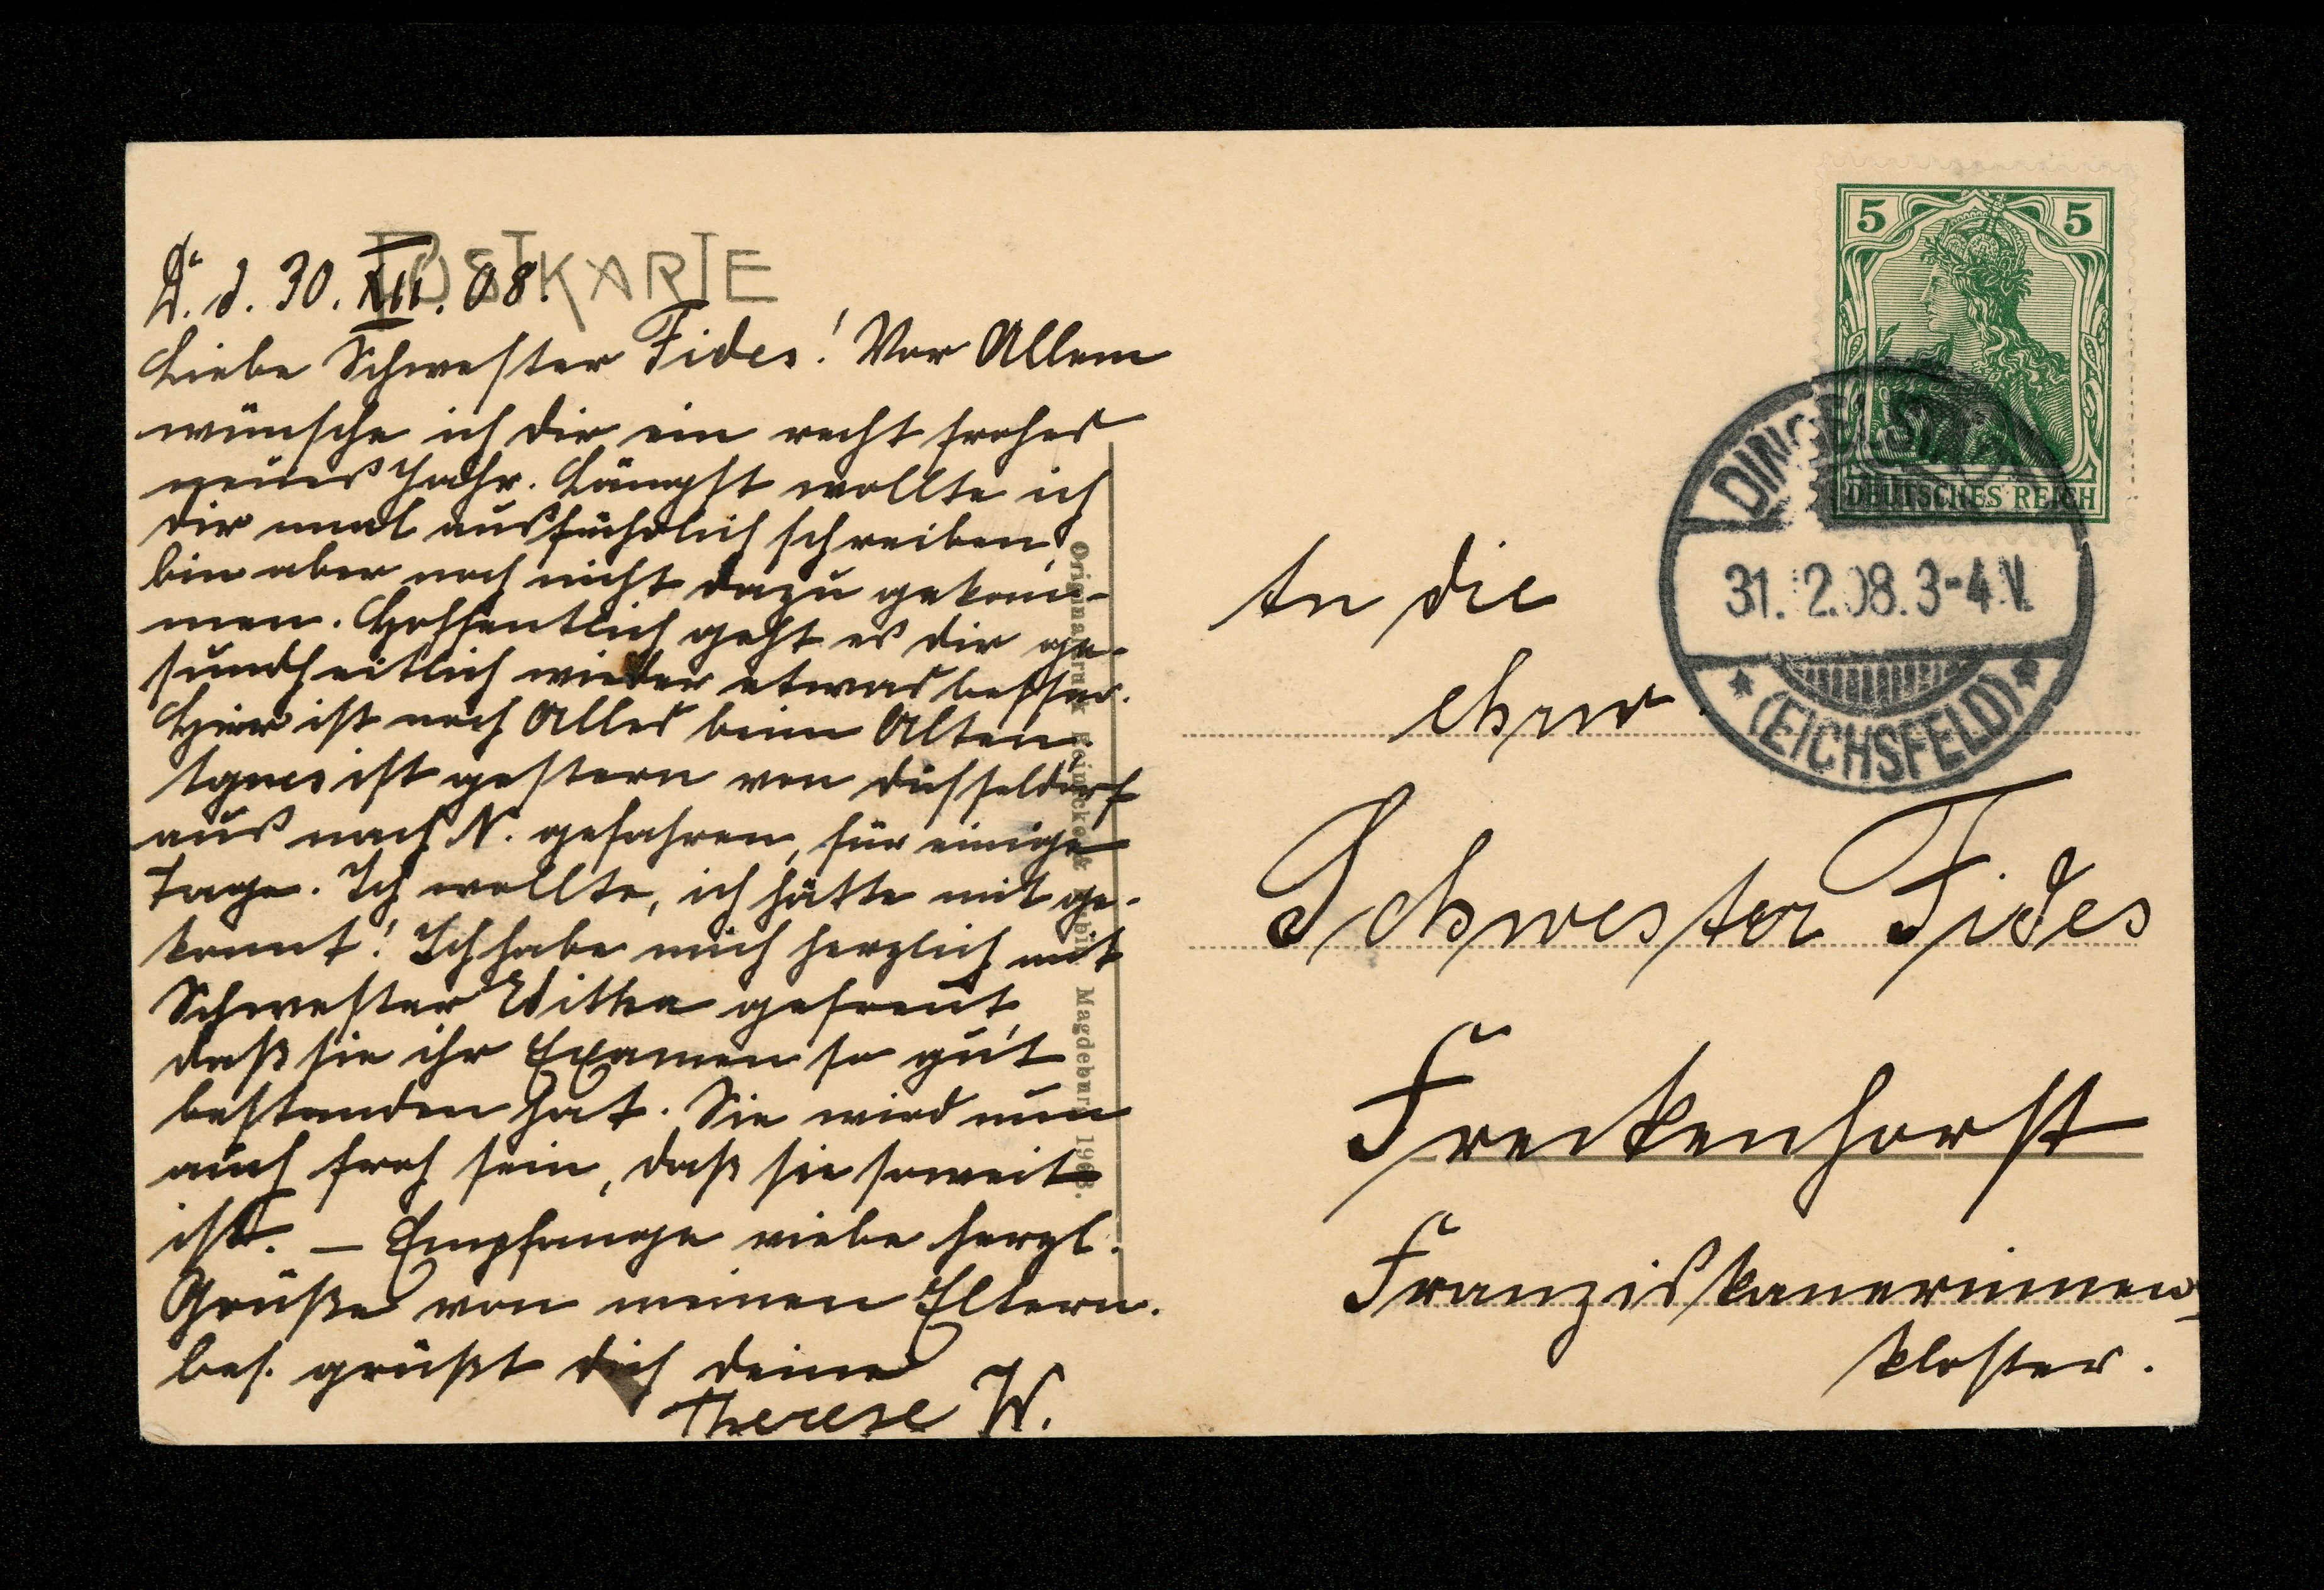 POSTKARTE
D. d. 30. XII. 08.
Liebe Schwester Fides! Vor Allem
wünsche ich dir ein recht frohes
neues Jahr. Längst wollte ich
dir mal ausführlich schreiben,
bin aber noch nicht dazu gekom-
men. Hoffentlich geht es dir ge-
sundheitlich wieder etwas besser.
Hier ist noch Alles beim Alten.
Agnes ist gestern von Düsseldorf
aus nach N. gefahren, für einige
Tage. Ich wollte, ich hätte mit ge-
konnt! Ich habe mich herzlich mit
Schwester Editha gefreut,
daß sie ihr Examen so gut
bestanden hat. Sie wird nun
auch froh sein, daß sie soweit
ist. – Empfange viele herzl.
Grüße von meinen Eltern.
bes. grüßt dich deine
Therese W.
Magdeburg 1908.
5 5
DEUTSCHES REICH
DINGELSTÄDT
31.12.08.3-4 V.
(EICHSFELD)
An die
ehrw.
Schwester Fides
Freckenhorst
Franziskanerinnen-
kloster.